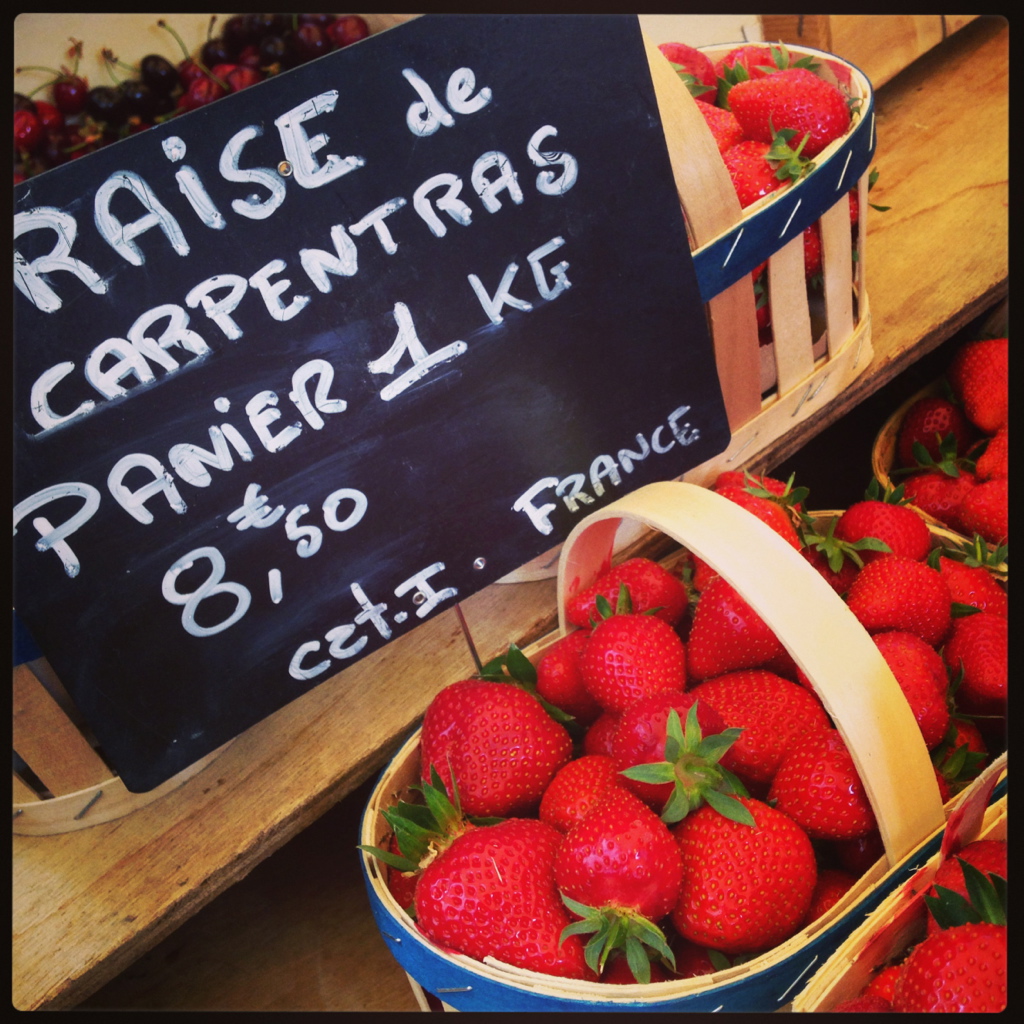 RAISE de
CARPENTRAS
PANIER 1 KG
8,€50
FRANCE
czt.I.